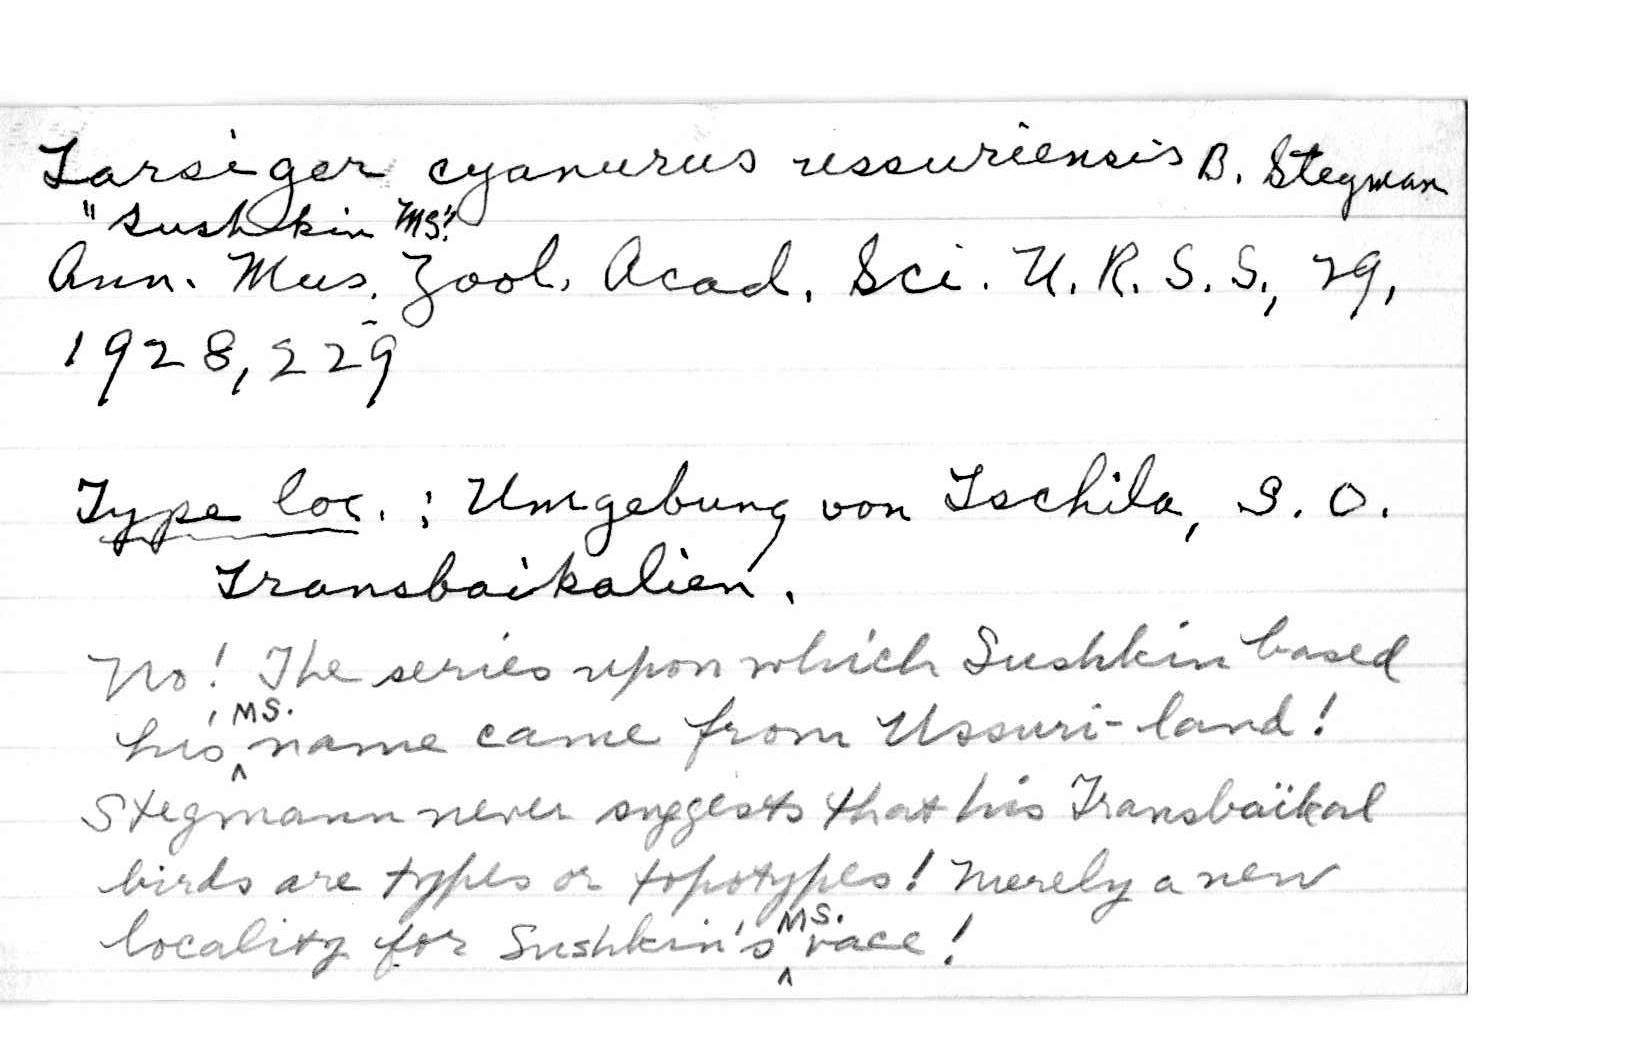 Tarsiger cyanurus ussuriensis B. Stegman
"Sushkin MS."
Ann. Mus. Zool. Acad. Sci. U.R.S.S., 29,
1928, 229
Type loc. : Umgebung von Tschila, S. O.
Transbaikalien.
No! The series upon which Sushkin based
his MS. name came from Ussuri-land!
Stegmann never suggests that his Transbaïkal
birds are types or topotypes! Merely a new
locality for Sushkin's MS. race!